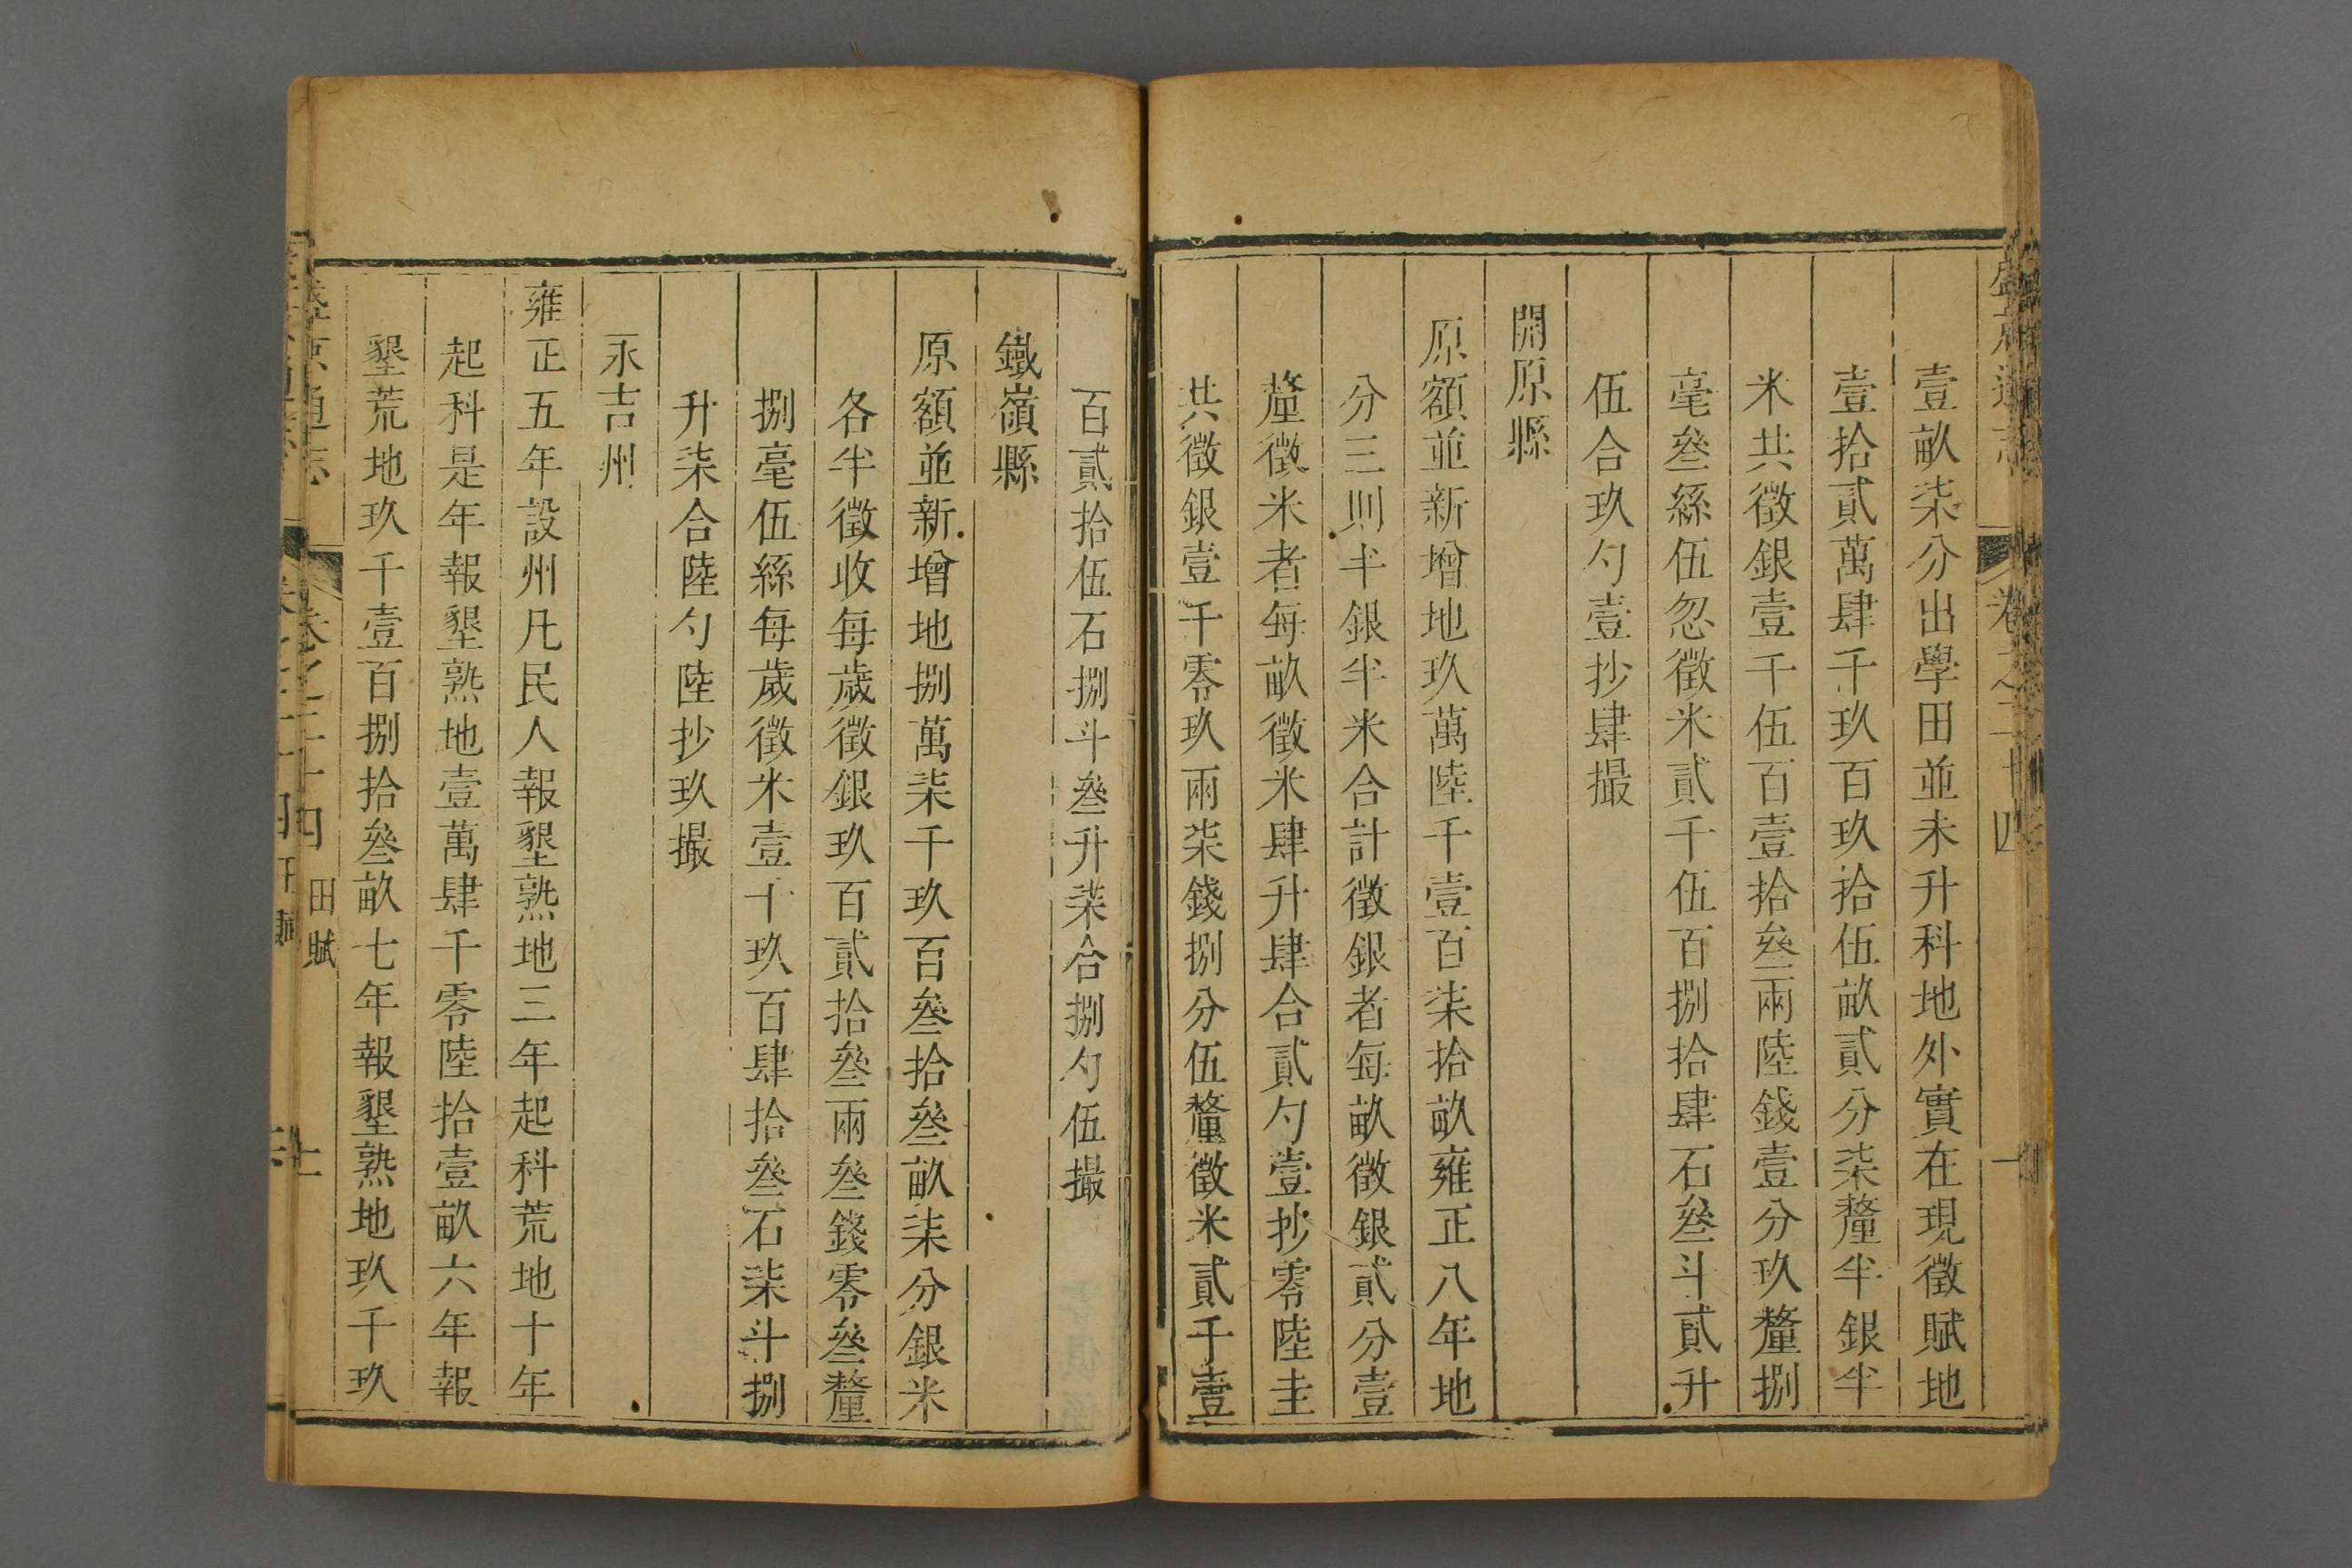 壹畝柒分出學田並未升科地外實在現徵賦地
壹拾貳萬肆千玖百玖拾伍畝貳分柒釐半銀半
米共徵銀壹千伍百壹拾叁兩陸錢壹分玖釐捌
毫叁絲伍忽徵米貳千伍百捌拾肆石叁斗貳升
伍合玖勺壹抄肆撮
開原縣
原額並新增地玖萬陸千壹百柒拾畝雍正八年地
分三則半銀半米合計徵銀者每畝徵銀貳分壹
釐徵米者每畝徵米肆升肆合貳勺壹抄零陸圭
共徵銀壹千零玖兩柒錢捌分伍釐徵米貳千壹
百貳拾伍石捌斗叁升柒合捌勺伍撮
鐵嶺縣
原額並新增地捌萬柒千玖百叁拾叁畝柒分銀米
各半徵收每歲徵銀玖百貳拾叁兩叁錢零叁釐
捌毫伍絲每歲徵米壹千玖百肆拾叁石柒斗捌
升柒合陸勺陸抄玖撮
永吉州
雍正五年設州凡民人報墾熟地三年起科荒地十年
起科是年報墾熟地壹萬肆千零陸拾壹畝六年報
墾荒地玖千壹百捌拾叁畝七年報墾熟地玖千玖
盛京通志 卷之二十四 田賦